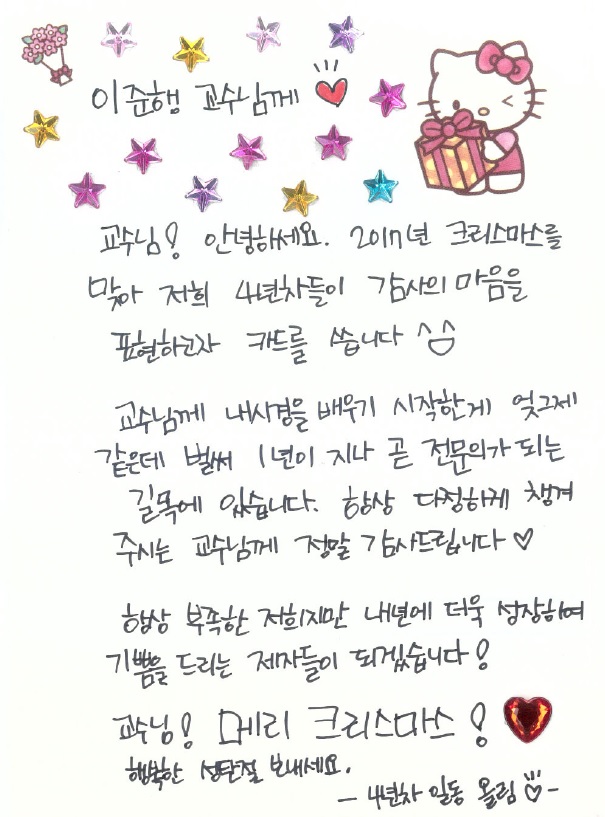 이준행 교수님께
교수님! 안녕하세요. 2017년 크리스마스를
맞아 저희 4년차들이 감사의 마음을
표현하고자 카드를 씁니다 ^^
교수님께 내시경을 배우기 시작한게 엊그제
같은데 벌써 1년이 지나 곧 전문의가 되는
길목에 있습니다. 항상 다정하게 챙겨
주시는 교수님께 정말 감사드립니다 ♡
항상 부족한 저희지만 내년에 더욱 성장하여
기쁨을 드리는 제자들이 되겠습니다!
교수님! 메리 크리스마스!
행복한 성탄절 보내세요.
- 4년차 일동 올림 ♡ -